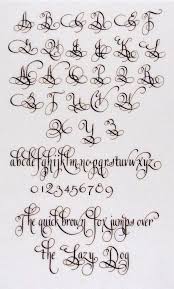 A B C D E F
G H I J K L
M N O P Q R
S T U V W
X Y Z
abcdefghijklmnopqrstuvwxyz
0123456789
The quick brown fox jumps over
the Lazy Dog